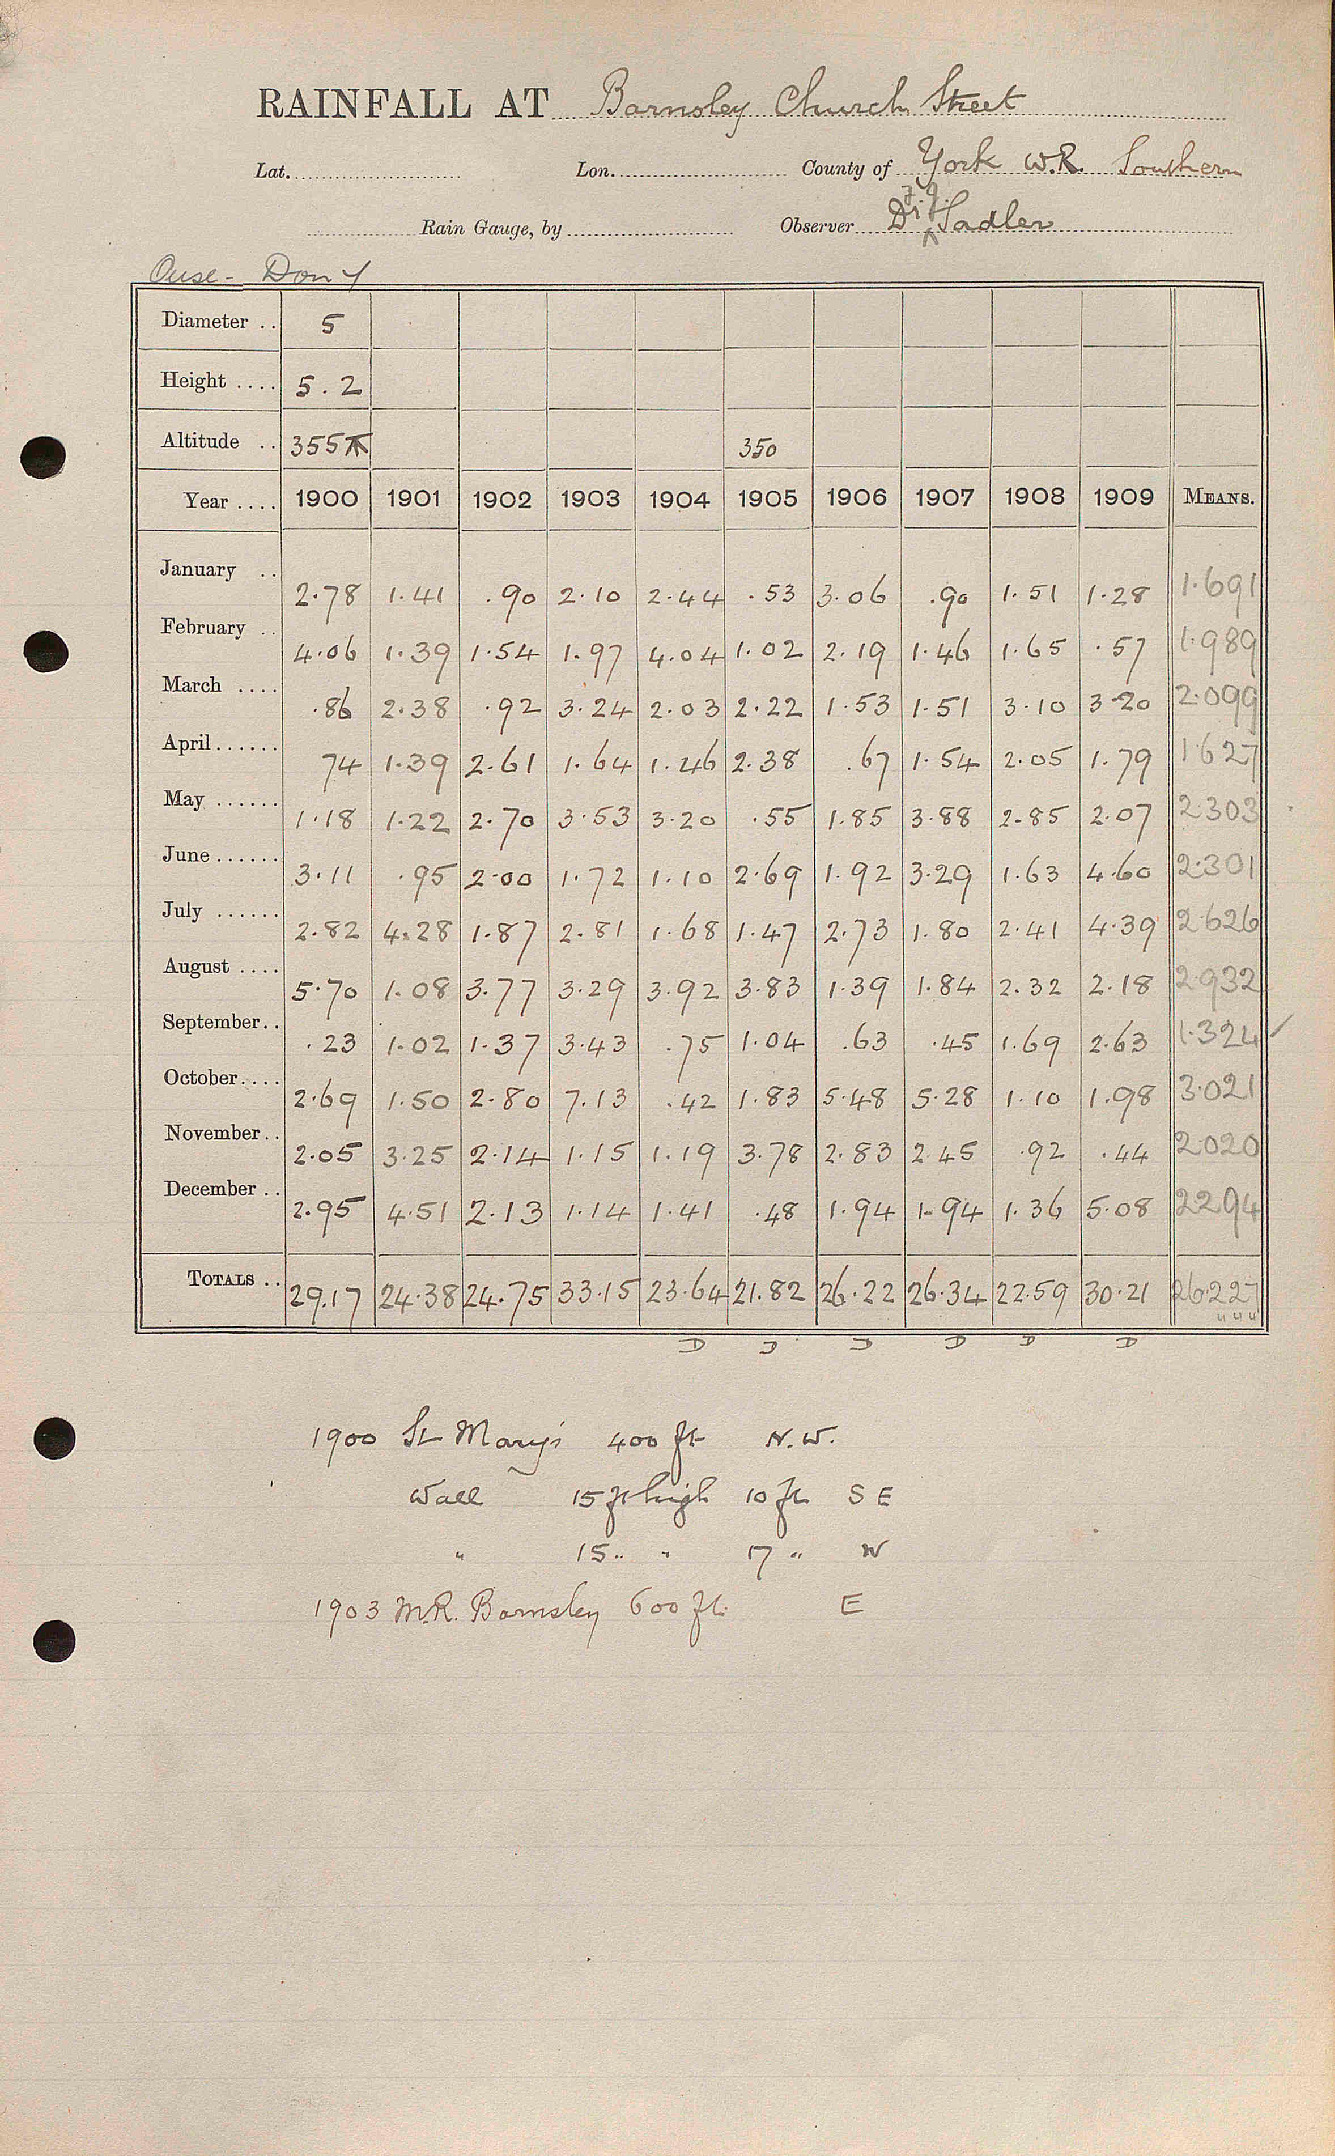 RAINFALL AT Barnsley Church Street
Lat. Lon. County of York W.R. Southern
Rain Gauge, by Observer Dr Sadler
Ouse - Don
Diameter .. 5
Height .... 5.2
Altitude .. 355 350
Year .... 1900 1901 1902 1903 1904 1905 1906 1907 1908 1909 MEANS.
January .. 2.78 1.41 .90 2.10 2.44 .53 3.06 .90 1.51 1.28 1.691
February .. 4.06 1.39 1.54 1.97 4.04 1.02 2.19 1.46 1.65 .57 1.989
March .... .86 2.38 .92 3.24 2.03 2.22 1.53 1.51 3.10 3.20 2.099
April...... 74 1.39 2.61 1.64 1.46 2.38 .67 1.54 2.05 1.79 1.627
May ...... 1.18 1.22 2.70 3.53 3.20 .55 1.85 3.88 2.85 2.07 2.303
June...... 3.11 .95 2.00 1.72 1.10 2.69 1.92 3.29 1.63 4.60 2.301
July ...... 2.82 4.28 1.87 2.81 1.68 1.47 2.73 1.80 2.41 4.39 2.626
August .... 5.70 1.08 3.77 3.29 3.92 3.83 1.39 1.84 2.32 2.18 2.932
September.. .23 1.02 1.37 3.43 .75 1.04 .63 .45 1.69 2.63 1.324
October.... 2.69 1.50 2.80 7.13 .42 1.83 5.48 5.28 1.10 1.98 3.021
November.. 2.05 3.25 2.14 1.15 1.19 3.78 2.83 2.45 .92 .44 2.020
December .. 2.95 4.51 2.13 1.14 1.41 .48 1.94 1.94 1.36 5.08 2.294
TOTALS .. 29.17 24.38 24.75 33.15 23.64 21.82 26.22 26.34 22.59 30.21 26.227
D D D D D D
1900 St Mary's 400 ft N.W.
Wall 15 ft high 10 ft S E
" 15 " " 17 " W
1903 M.R. Barnsley 600 ft. E